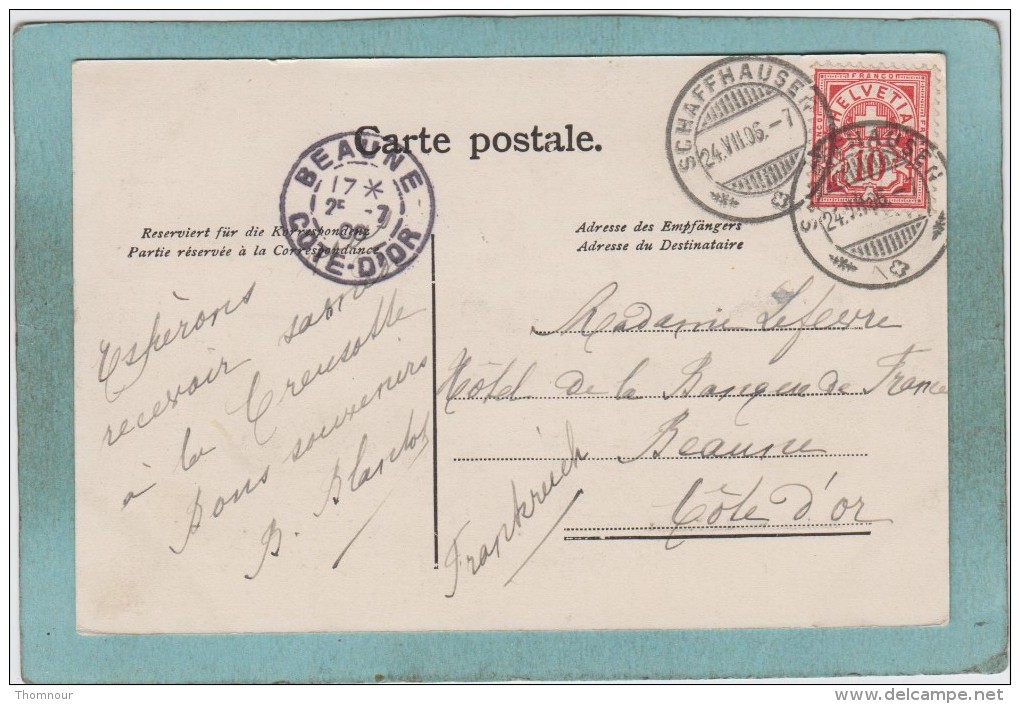 Carte postale.
SCHAFFHAUSEN
24.VII.06.-7
FRANCO
HELVETIA
10
SCHAFFHAUSEN
24.VII.06
BEAUNE
17 *
25 -7
06
CÔTE-D'OR
Reserviert für die Korrespondenz
Partie réservée à la Correspondance
Adresse des Empfängers
Adresse du Destinataire
Espérons
recevoir
à la Creusotte
Bons souvenirs
B.
Madame Lefevre
Hôtel de la Banque de France
Beaune
Côte d'or
Frankreich
Thomnour
www.delcampe.net